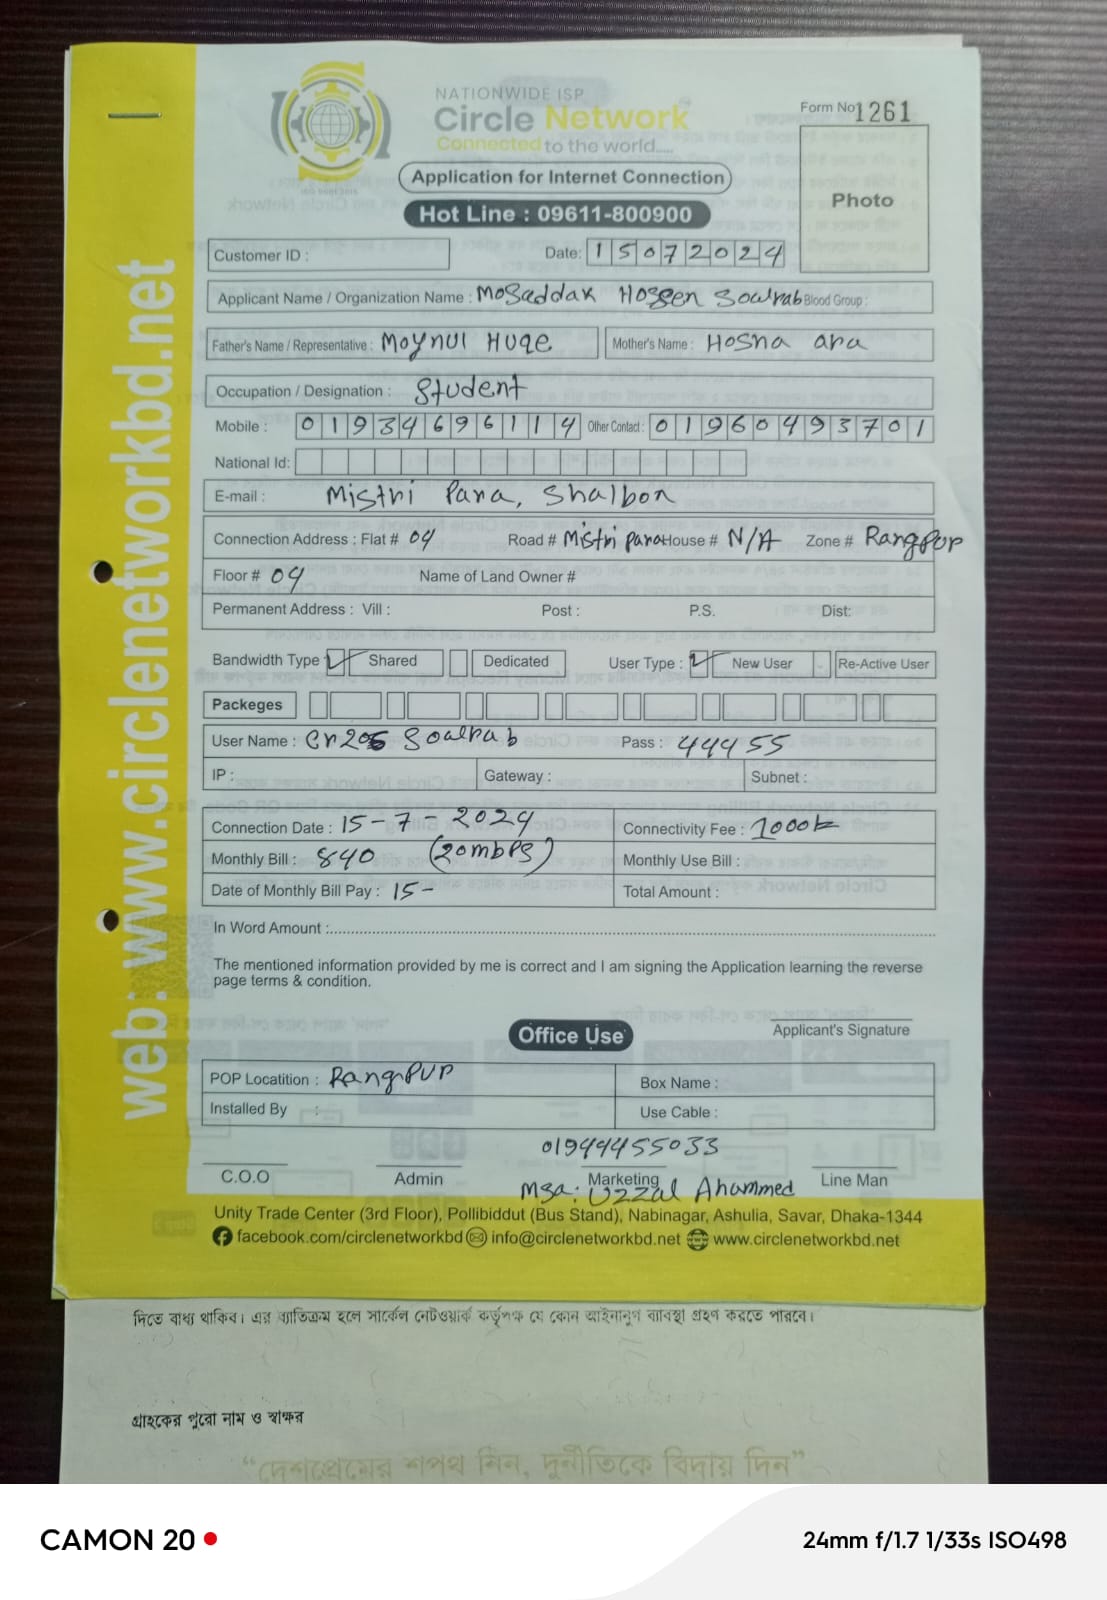 NATIONWIDE ISP
Circle Network
Connected to the world....
Form No 1261
Application for Internet Connection
Hot Line : 09611-800900
Photo
Customer ID :
Date: 15072024
Applicant Name / Organization Name : Mosaddak Hossen Sowrab Blood Group :
Father's Name / Representative : Moynul Huqe Mother's Name : Hosna ara
Occupation / Designation : Student
Mobile : 01934696114 Other Contact : 01960493701
National Id:
E-mail : Mistri Para, Shalbon
Connection Address : Flat # 04 Road # Mistri Para House # N/A Zone # Rangpur
Floor # 04 Name of Land Owner #
Permanent Address : Vill : Post : P.S. Dist:
Bandwidth Type Shared Dedicated User Type : New User Re-Active User
Packeges
User Name : Soulrab Pass : 44455
IP : Gateway : Subnet :
Connection Date : 15-7-2024 Connectivity Fee : 1000
Monthly Bill : 840 (20mbps) Monthly Use Bill :
Date of Monthly Bill Pay : 15- Total Amount :
In Word Amount :
The mentioned information provided by me is correct and I am signing the Application learning the reverse
page terms & condition.
Applicant's Signature
Office Use
POP Locatition : Rangpur Box Name :
Installed By : Use Cable :
01944455033
C.O.O Admin Marketing Line Man
Msa: Uzzal Ahammed
Unity Trade Center (3rd Floor), Pollibiddut (Bus Stand), Nabinagar, Ashulia, Savar, Dhaka-1344
facebook.com/circlenetworkbd info@circlenetworkbd.net www.circlenetworkbd.net
web: www.circlenetworkbd.net
দিতে বাধ্য থাকিব। এর ব্যতিক্রম হলে সার্কেল নেটওয়ার্ক কর্তৃপক্ষ যে কোন আইনানুগ ব্যাবস্থা গ্রহণ করতে পারবে।
গ্রাহকের পুরো নাম ও স্বাক্ষর
“দেশপ্রেমের শপথ নিন, দুর্নীতিকে বিদায় দিন”
CAMON 20
24mm f/1.7 1/33s ISO498